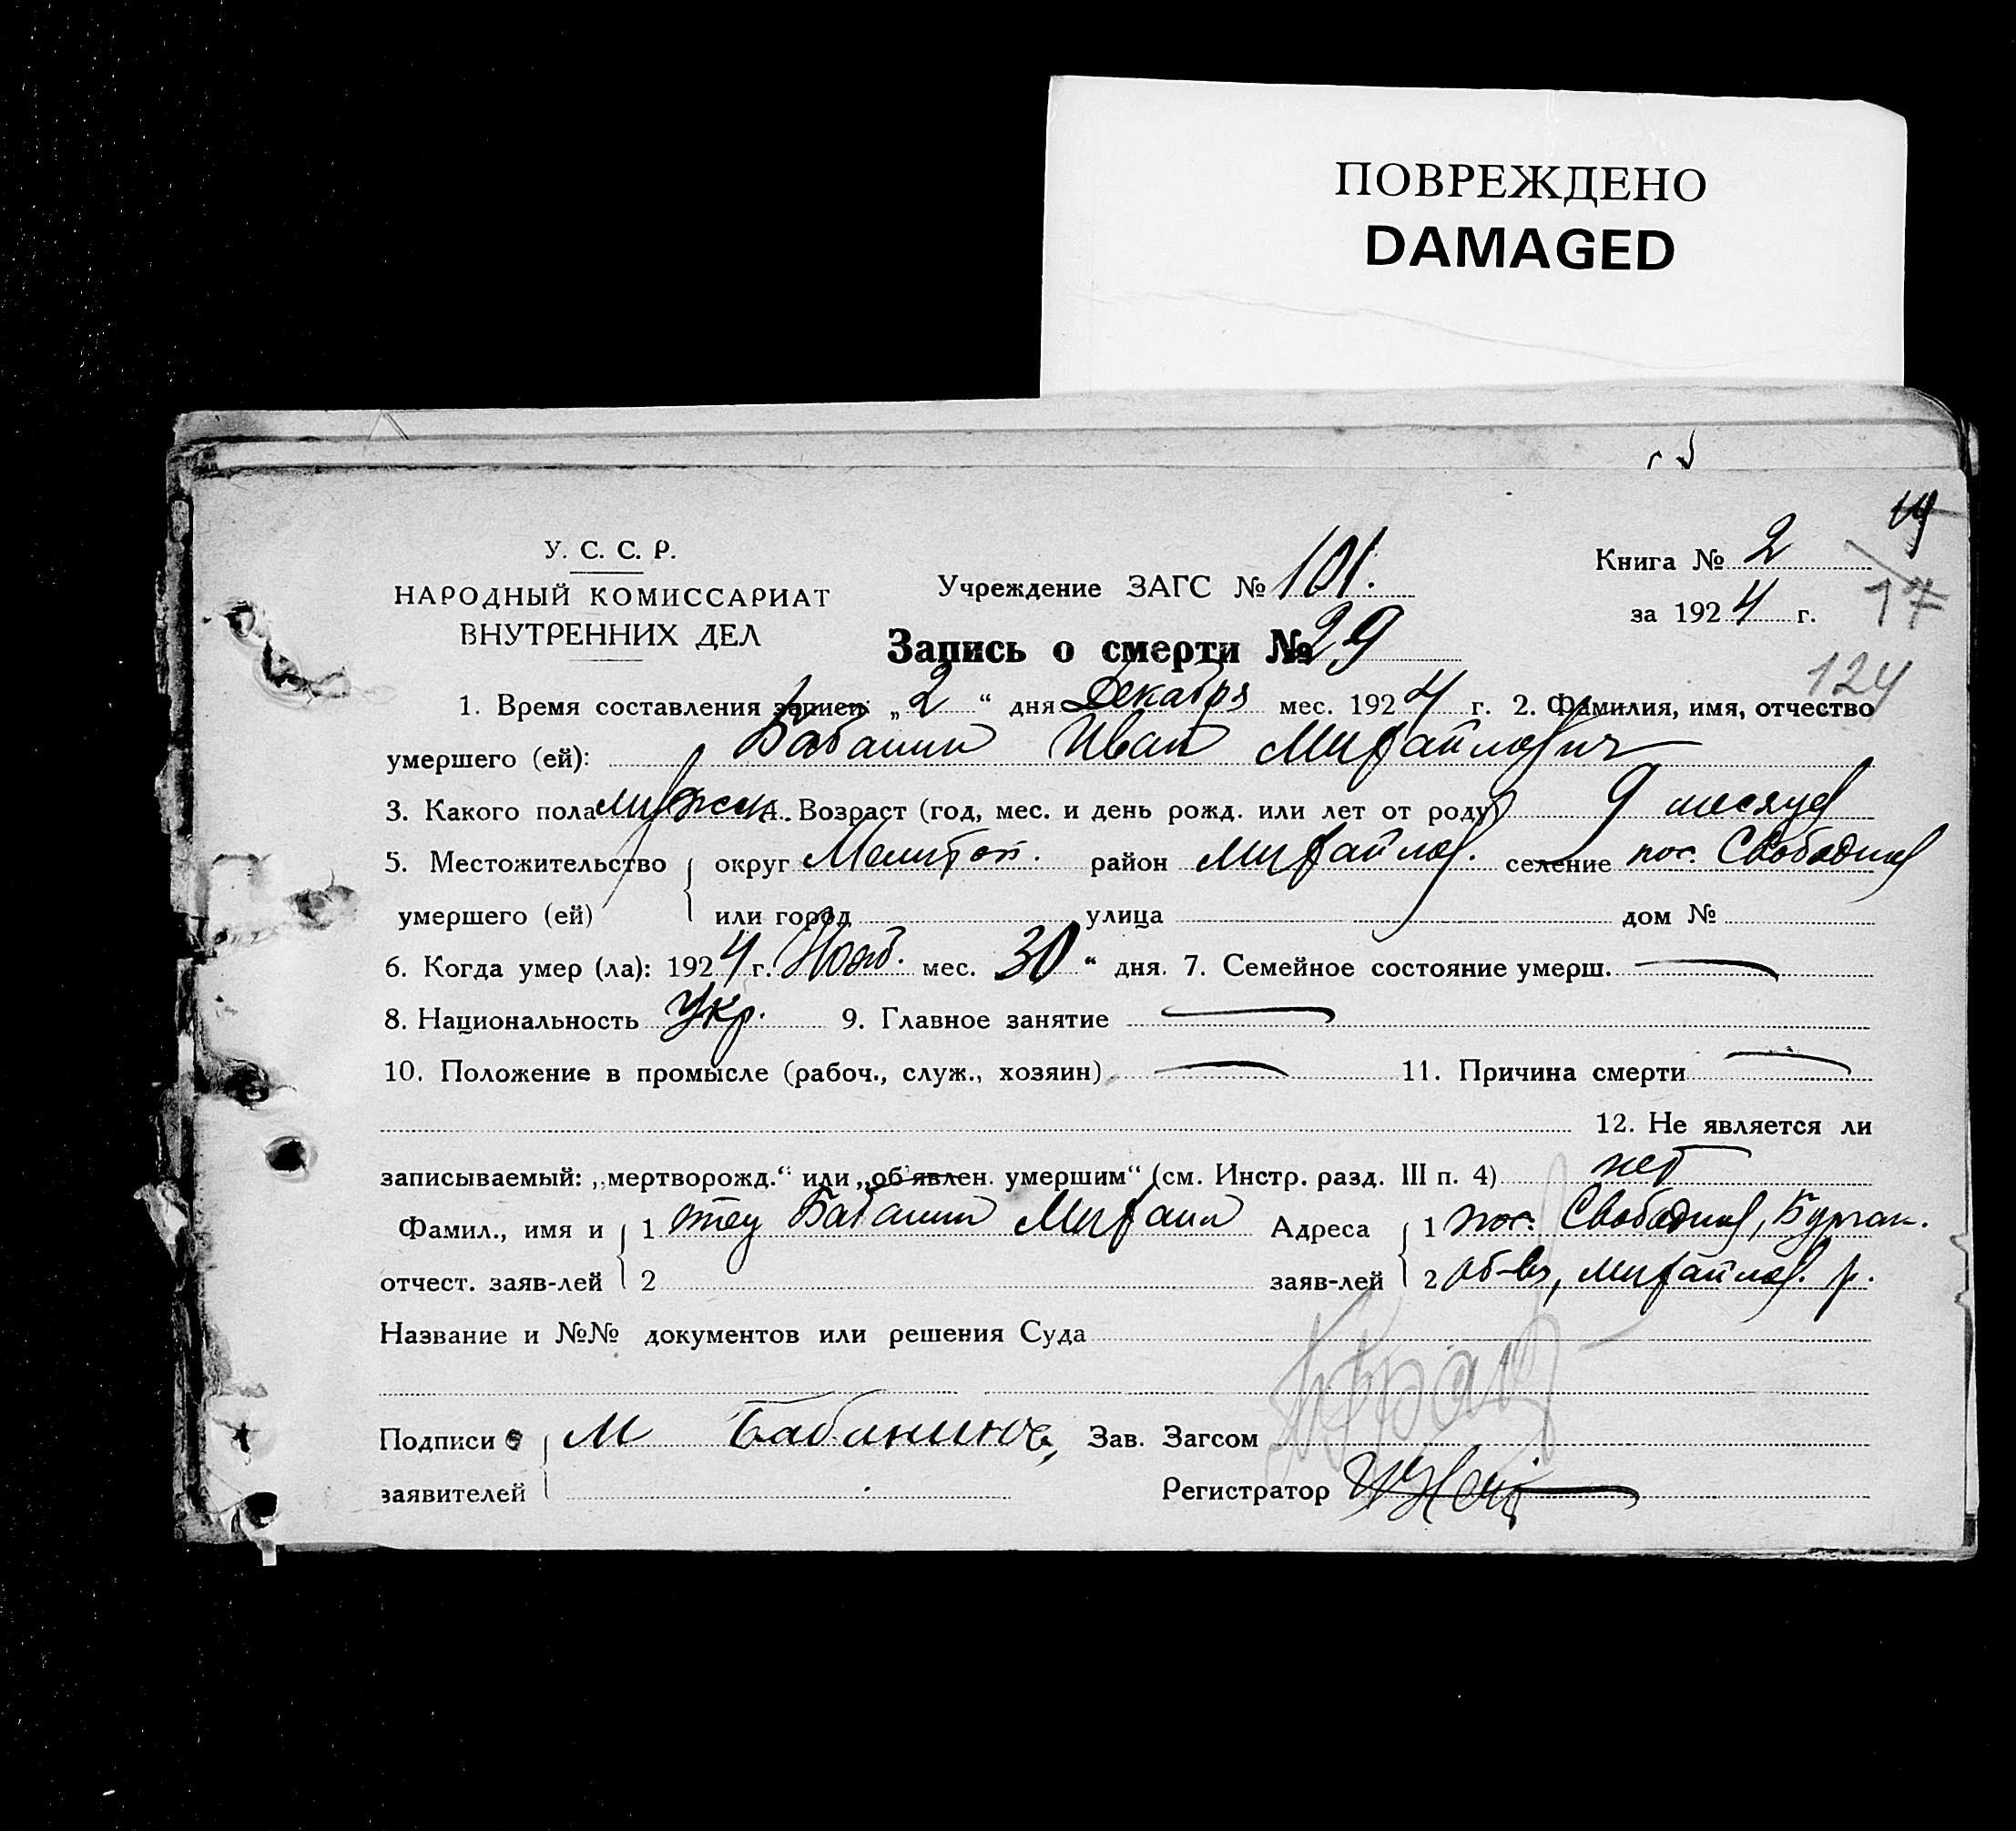 ПОВРЕЖДЕНО
DAMAGED
У. С. С. Р.
НАРОДНЫЙ КОМИССАРИАТ
ВНУТРЕННИХ ДЕЛ
Учреждение ЗАГС № 101.
Книга № 2
за 1924 г.
17
124
Запись о смерти № 29
1. Время составления записи: „2“ дня Декабря мес. 1924 г. 2. Фамилия, имя, отчество
умершего (ей): Бабанин Иван Михайлович
3. Какого пола мужск. 4. Возраст (год, мес. и день рожд. или лет от роду) 9 месяцев
5. Местожительство округ Мелитоп. район Михайлов. селение пос. Свободный
умершего (ей) или город улица дом №
6. Когда умер (ла): 1924 г. Нояб. мес. 30 “ дня. 7. Семейное состояние умерш. —
8. Национальность Укр. 9. Главное занятие —
10. Положение в промысле (рабоч., служ., хозяин) — 11. Причина смерти —
12. Не является ли
записываемый: „мертворожд.“ или „об'явлен. умершим“ (см. Инстр. разд. III п. 4) нет
Фамил., имя и 1 отец Бабанин Михаил Адреса 1 пос. Свободный, Бурчан.
отчест. заяв-лей 2 заяв-лей 2 об-ва, Михайлов. р.
Название и №№ документов или решения Суда
Подписи М Бабанин Зав. Загсом
заявителей Регистратор